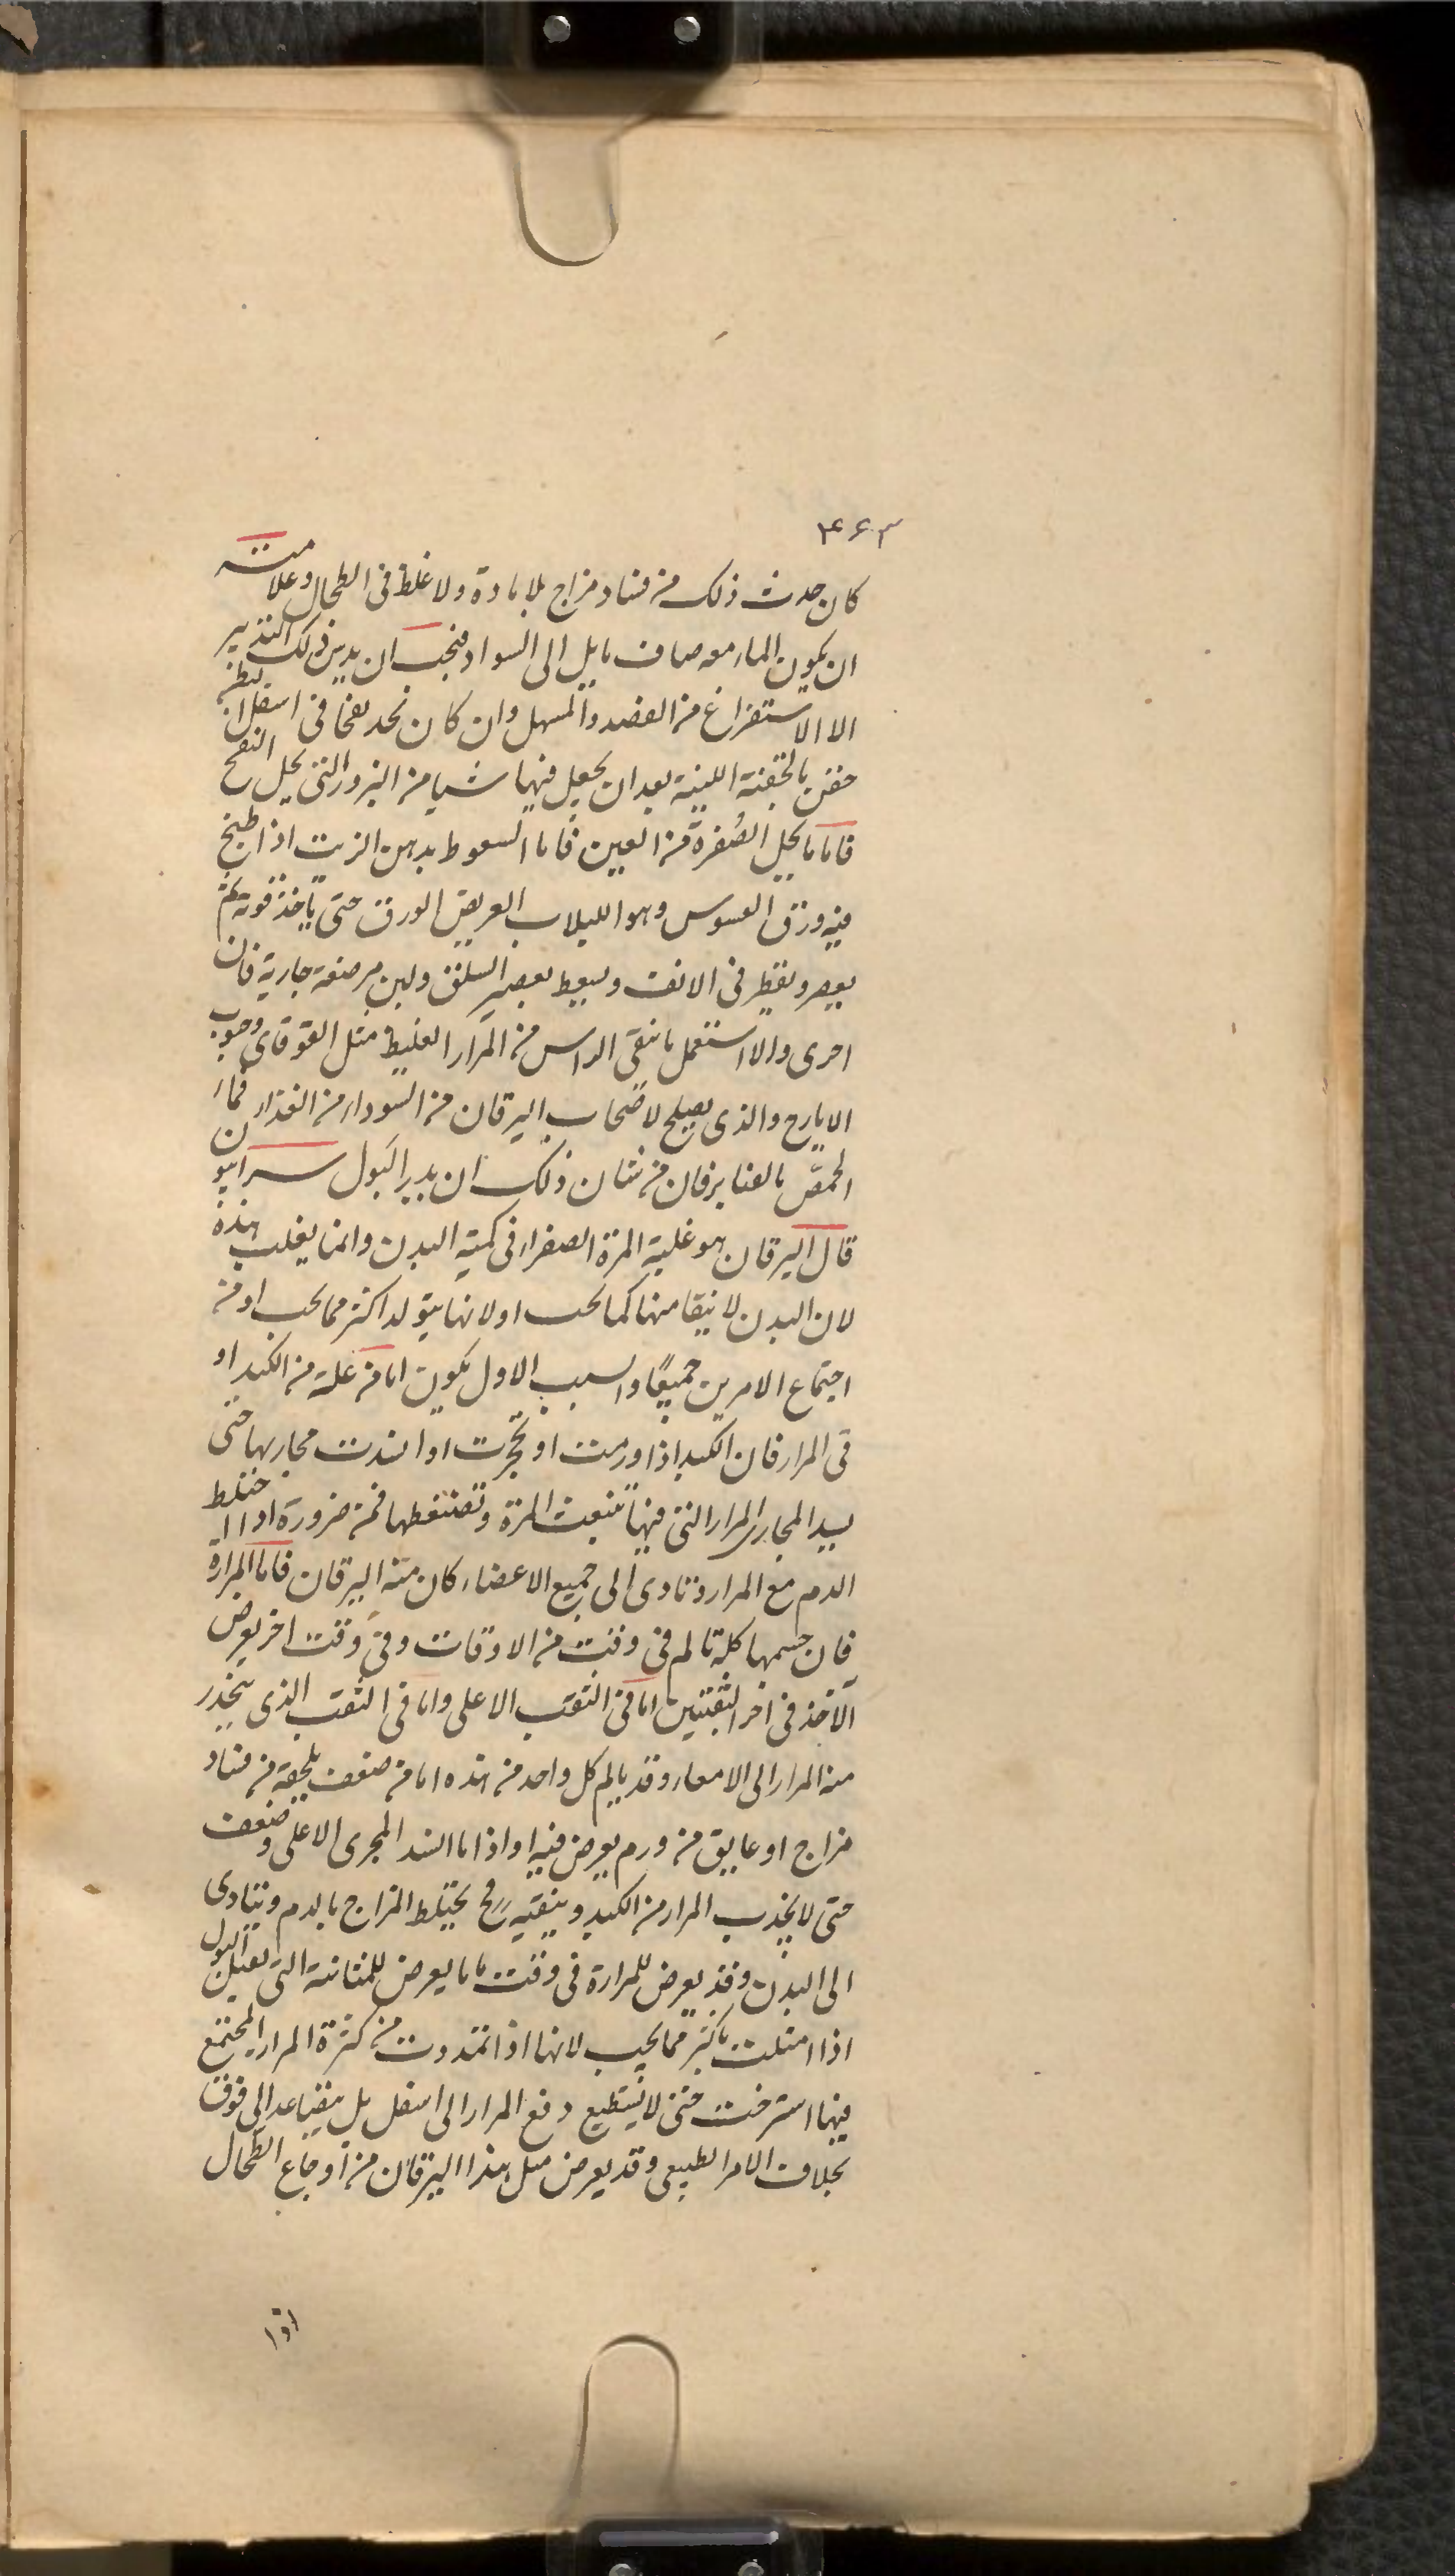 ۴۶۳
كان حدث ذلك من فساد مزاج بلا مادة ولا غلظ فى الطحال وعلامته
ان يكون الماء معه صاف مايل الى السواد فيجب ان يدبر ذلك التدبير
الا الاستفراغ من الفصد والمسهل وان كان نجد نفخا فى اسفل البطن
حقن بالحقنة اللينة بعد ان يجعل فيها شيا من البزور التى يحل النفخ
فاما ما يحل الصُفرة من العين فاما السعوط بدهن الزيت اذا طبخ
فيه ورق العسوس وهو اللبلاب العريض الورق حتى ياخذ قوته ثم
يعصر ويقطر فى الانف ويسعط بعصير السلق ولبن مرضعة جارية فان
اجرى والا استعمل ما ينقى الراس من المرار الغليظ مثل القوقاى وحبوب
الايارج والذى يصلح لاصحاب اليرقان من السوداء من الغذاء فماء
الحمص بالعنابر فان من شان ذلك ان يدير البول سرابيون
قال اليرقان هو غلبة المرة الصفراء فى كمية البدن وانما يغلب هذه
لان البدن لا ينقا منها كما يجب او لانها يتولد اكثر مما يجب او من
اجتماع الامرين جميعًا والسبب الاول يكون اما من علة من الكبد او
فى المرار فان الكبد اذا ورمت او تحجرت او انسدت مجاريها حتى
يسد المجارى المرار التى فيها تنبعث المرة وتضغطها فمن ضرورة اذا اختلط
الدم مع المرار وتادى الى جميع الاعضاء كان منه اليرقان فاما المرارة
فان جسمها كله تالم فى وقت من الاوقات وفى وقت اخر يعرض
الآخذ فى اخر الثقبتين اما فى الثقب الاعلى واما فى الثقب الذى ينحدر
منه المرار الى الامعاء وقد يالم كل واحد من هذه اما من ضعف يلحقه من فساد
مزاج او عايق من ورم يعرض فيه او اذا ما انسد المجرى الاعلى وضعف
حتى لا يجذب المرار من الكبد وينقيه فح يختلط المزاج بالدم ويتادى
الى البدن وقد يعرض للمرارة فى وقت ما ما يعرض للمثانة التى تقبل البول
اذا امتلت باكثر مما يجب لانها اذا تمددت من كثرة المرار المجتمع
فيها استرخت حتى لا يستطيع دفع المرار الى اسفل بل يتصاعد الى فوق
بخلاف الامر الطبيعى وقد يعرض مثل هذا اليرقان من اوجاع الطحال
اذا